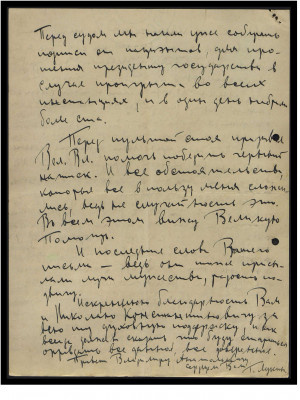 Перед судом мы начали уже собирать
подписи от пациентов, для про-
шения президенту государства в
случае проигрыша во всех
инстанциях, и в один день набрали
более ста.
Перед пультом стоя призывал
Вел. Вл. помочь победить черный
натиск. И все обстоятельства,
которые все в пользу меня сложи-
лись, ведь не случайность это.
Во всем этом вижу Великую
Помощь.
И последние слов Вашего
письма – ведь они мне присы-
лали луч мужества, радость по-
двигу.
Искреннюю благодарность Вам
и Николаю Константиновичу за
всю эту духовную поддержку, и как
всегда должен сказать что буду стараться
оправдать все данное, все доверение.
Привет Владимиру Анатольевичу
сердцем Ваш Г. Лукин